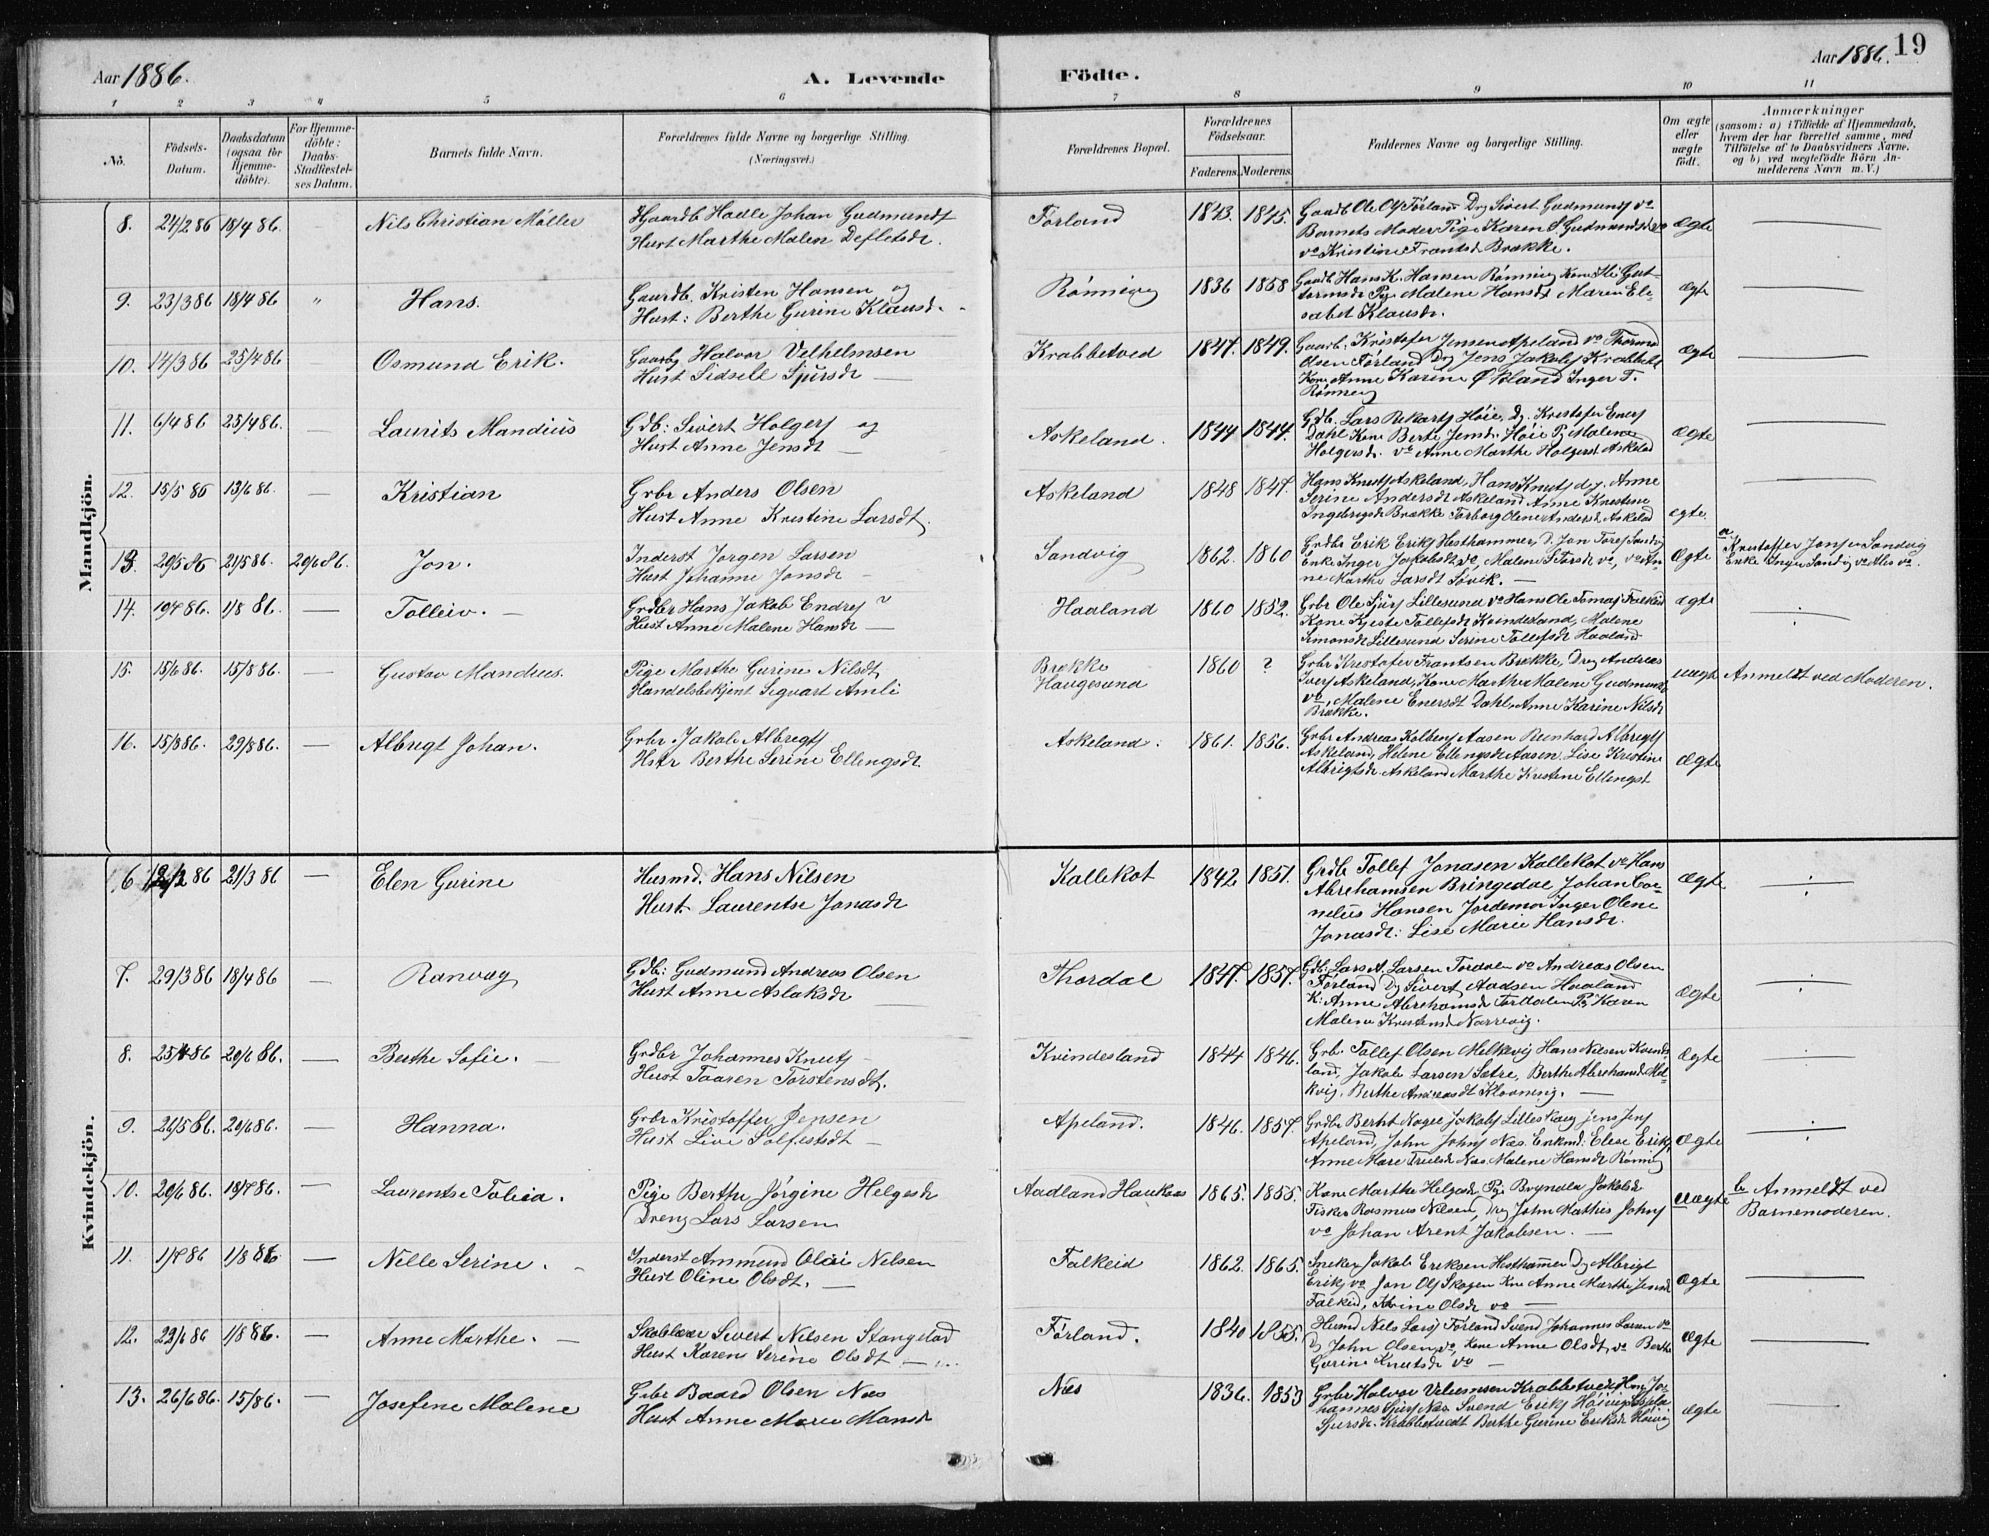 19
Aar 1886.
A. Levende
Födte.
Aar 1886.
1 2 3 4 5 6 7 8 9 10 11
No.
Födsels-
Datum.
Daabsdatum
(ogsaa for
Hjemme-
döbte).
For Hjemme-
döbte:
Daabs-
Stadfæstel-
ses Datum.
Barnets fulde Navn.
Forældrenes fulde Navne og borgerlige Stilling.
(Næringsvei.)
Forældrenes Bopæl.
Forældrenes
Födselsaar.
Faderens. Moderens.
Faddernes Navne og borgerlige Stilling.
Om ægte
eller
uægte
födt.
Anmærkninger
(saasom: a) i Tilfælde af Hjemmedaab,
hvem der har forrettet samme, med
Tilföielse af to Daabsvidners Navne.
og b) ved uægtefödte Börn An-
melderens Navn m.V.)
Mandkjön.
8. 24/2 86 18/4 86. Nils Christian Møller
Gaardb Hadle Johan Gudmunds
Hust Marthe Malen Defletsdr.
Førland 1843. 1845.
Gaardb Ole Ols Førland Drg Sivert Gudmunds vo
Barnets Moder Pige Karen S Gudmundsdr vo
vo Kristine Frantsdr Brække.
ægte
9. 23/3 86 18/4 86 " Hans.
Gaardb. Kristen Hansen og
Hust: Berthe Gurine Klausdr.
Rønnevig 1836 1858
Gaardb Hans K. Hansen Rønnevig Kone Gut-
tormsdr Pg Malene Hansdr Maren Ele-
sabet Klausdr.
ægte
10. 14/3 86 25/4 86 Osmund Erik.
Gaarb Halvor Velhelmsen
Hust Sidsele Sjursdr —
Krabbetved 1847. 1849.
Gaarb. Kristofer Jensen Apeland vo Thormod
Olsen Førland Drg Jens Jakobs Krabbetv
Kone Anne Karine Økland Inger T.
Rønnevig
ægte
11. 6/4 86 25/4 86. — Laurits Mandius
Gdb: Sivert Holgers og
Hust Anne Jensdr —
Askeland. 1844 1844.
Gdb. Lars Rikarts Høie, Dg. Kristofer Eners
Dahl Kone Berte Jensdr. Høie Pg Malene
Holgersdr. vo Anne Marthe Holgersdt Askelad
ægte
12. 15/5 86 13/6 86. — Kristian
Grbr Anders Olsen
Hust Anne Kristine Larsdt.
Askeland 1848 1847.
Hans Knuts Askeland, Hans Knuts dg. Anne
Serine Andersdr Askeland Anne Kristene
Ingebrigsdr Brække Torborg Olene Andersdr Askelad
ægte.
13. 20/5 86 21/5 86. 20/6 86. Jon.
Inderst Jørgen Larsen
Hust Johanne Jonsdr —
Sandvig 1862. 1860
Grdbr Erik Eriks Hesthammer, D. Jon Tores Sandvig
Enke Inger Jakobsdt vo, Malene Torsdr vo, vo An-
ne Marthe Larsdt Søvik. —
Ægte
a Kristoffer Jons Sandvig
Enke Inger Sandvig vo Als vo.
14. 19/7 86. 1/8 86. — Tolleiv. —
Grdbr Hans Jakob Endres
Hust Anne Malene Hansdr —
Haaland 1860 1852.
Grbr Ole Sjurs Lillesund vo Hans Ole Tomas Falkeid
Kone Kjeste Tollefsdr Kvindesland, Malene
Simonsdr Lillesund Serine Tollefsdr Haaland
ægte
15. 15/6 86. 15/8 86. — Gustav Mandius.
Pige Marthe Gurine Nilsdt
Handelsbekjent Sigvart Amli
Brække
Haugesund 1860 ?
Grbr Kristofer Frantsen Brække, Drg Andreas
Ivers Askeland, Kone Marthe Malene Gudmunds
vo, Malene Enersdt Dahl, Anne Karine Nilsdr
Brække.
uægte Anmeldt ved Moderen.
16. 15/8 86. 29/8 86. — Albregt Johan.
Grbr. Jakob Albregts
Hstr Berthe Serine Ellengsdr.
Askeland. 1861. 1856.
Grbr Andreas Kolbens Aasen Reinhard Albregts
Askeland, Helene Ellengsdr Aasen, Lise Kristine
Albrigtsdr Askeland Marthe Kristene Ellengsdt
ægte
Kvindekjön.
6 12/2 86 21/3 86 — Elen Gurine
Husmd. Hans Nilsen
Hust. Laurentse Jonasdr
Kallekot 1842 1851.
Grdb Tollef Jonasen Kallekot vo Hans
Abrahamsen Bringedal Johan Cor-
nelius Hansen Jordemor Inger Olene
Jonasdr: Lise Marie Hansdr.
Ægte
7. 29/3 86 18/4 86 — Ranvæg
Gdb: Gudmund Andreas Olsen
Hust Anne Aslaksdr
Thordal 1847. 1857.
Gdb: Lars A. Larsen Tordalen vo Andreas Olsen
Førland Dg Sivert Aadsen Haaland
K: Anne Abrehamsdr Tordalen Pg Karen
Malene Kristensd Nærevig.
Ægte
8. 25/4 86 20/6 86. — Berthe Sofie. —
Grdbr Johannes Knuts —
Hust Taaren Torstensdt.
Kvindesland 1844 1846.
Grb. Tollef Olsen Melkevig Hans Nilsen Kvinds-
land, Jakob Larsen Sætre, Berthe Abrehamsdr Mel-
kvig, Berthe Andreasdt Klovning. —
Ægte
9. 26/5 86. 20/6 86. — Hanna.
Grbr Kristoffer Jensen
Hust Live Solfestsdt —
Apeland. 1846. 1857.
Grdbr Bernt Nagel Jakobs Lilleskog Jens Jens
Apeland, John Johns Næs. Enkmd: Elese Eriks,
Anne Mare Trulsdr Næs Malene Hansdr Rønnevig
Ægte
10. 20/6 86. 18/7 86. — Laurentse Tolina.
Pige Berthe Jørgine Helgesdr
Dreng Lars Larsen
Aadland Haukaas 1865. 1855.
Kone Marthe Helgesdr Pge Bryndla Jakobsdr
Fisker Rasmus Nilsen, Drg John Mathis Johns
vo Johan Arent Jakobsen. —
Uægte b. Anmeldt ved
Barnemoderen.
11. 1/7 86 1/8 86 — Nelle Serine.
Inderst Ammund Olai Nilsen
Hust Oline Olsdt. —
Falkeid 1862. 1865.
Sneker Jakob Eriksen Hesthammer Dg Albrigt
Eriks vo Jon Ols Skogen Kne Anne Marthe Jensdt
Falkeid, Karine Olsdr vo —
Ægte
12. 23/6 86 1/8 86. — Anne Marthe. —
Skolelærer Sivert Nilsen Stangeland
Hust Karen Serine Olsdt —
Førland. 1840 1855.
Husmd Nels Lars Førland Svend Johannes Larsen vo
Dg John Olsen vo, Kone Anne Olsdt, vo Berthe
Gurine Knutsdr vo —
Ægte
13. 26/6 86. 15/ 86. — Josefene Malene
Grbr Baard Olsen Næs
Hust Anne Marie Monsdr
Næs 1836. 1853
Grbr Halvor Velemsen Krabbetvedt Hm Jo-
hannes Sjurs Næs Svend Eriks Høivig
Sjursdr. Krabbetvedt Berthe Gurine Eriksdr Høivig
ægte